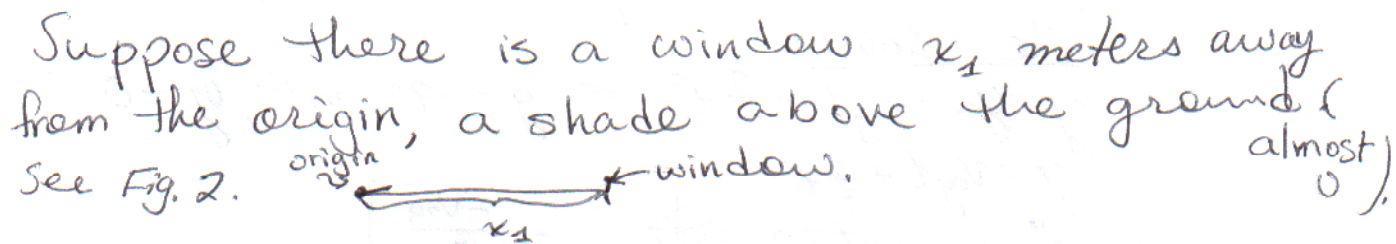 Suppose there is a window x₁ meters away
from the origin, a shade above the ground (
almost 0).
See Fig. 2. origin window.
x₁